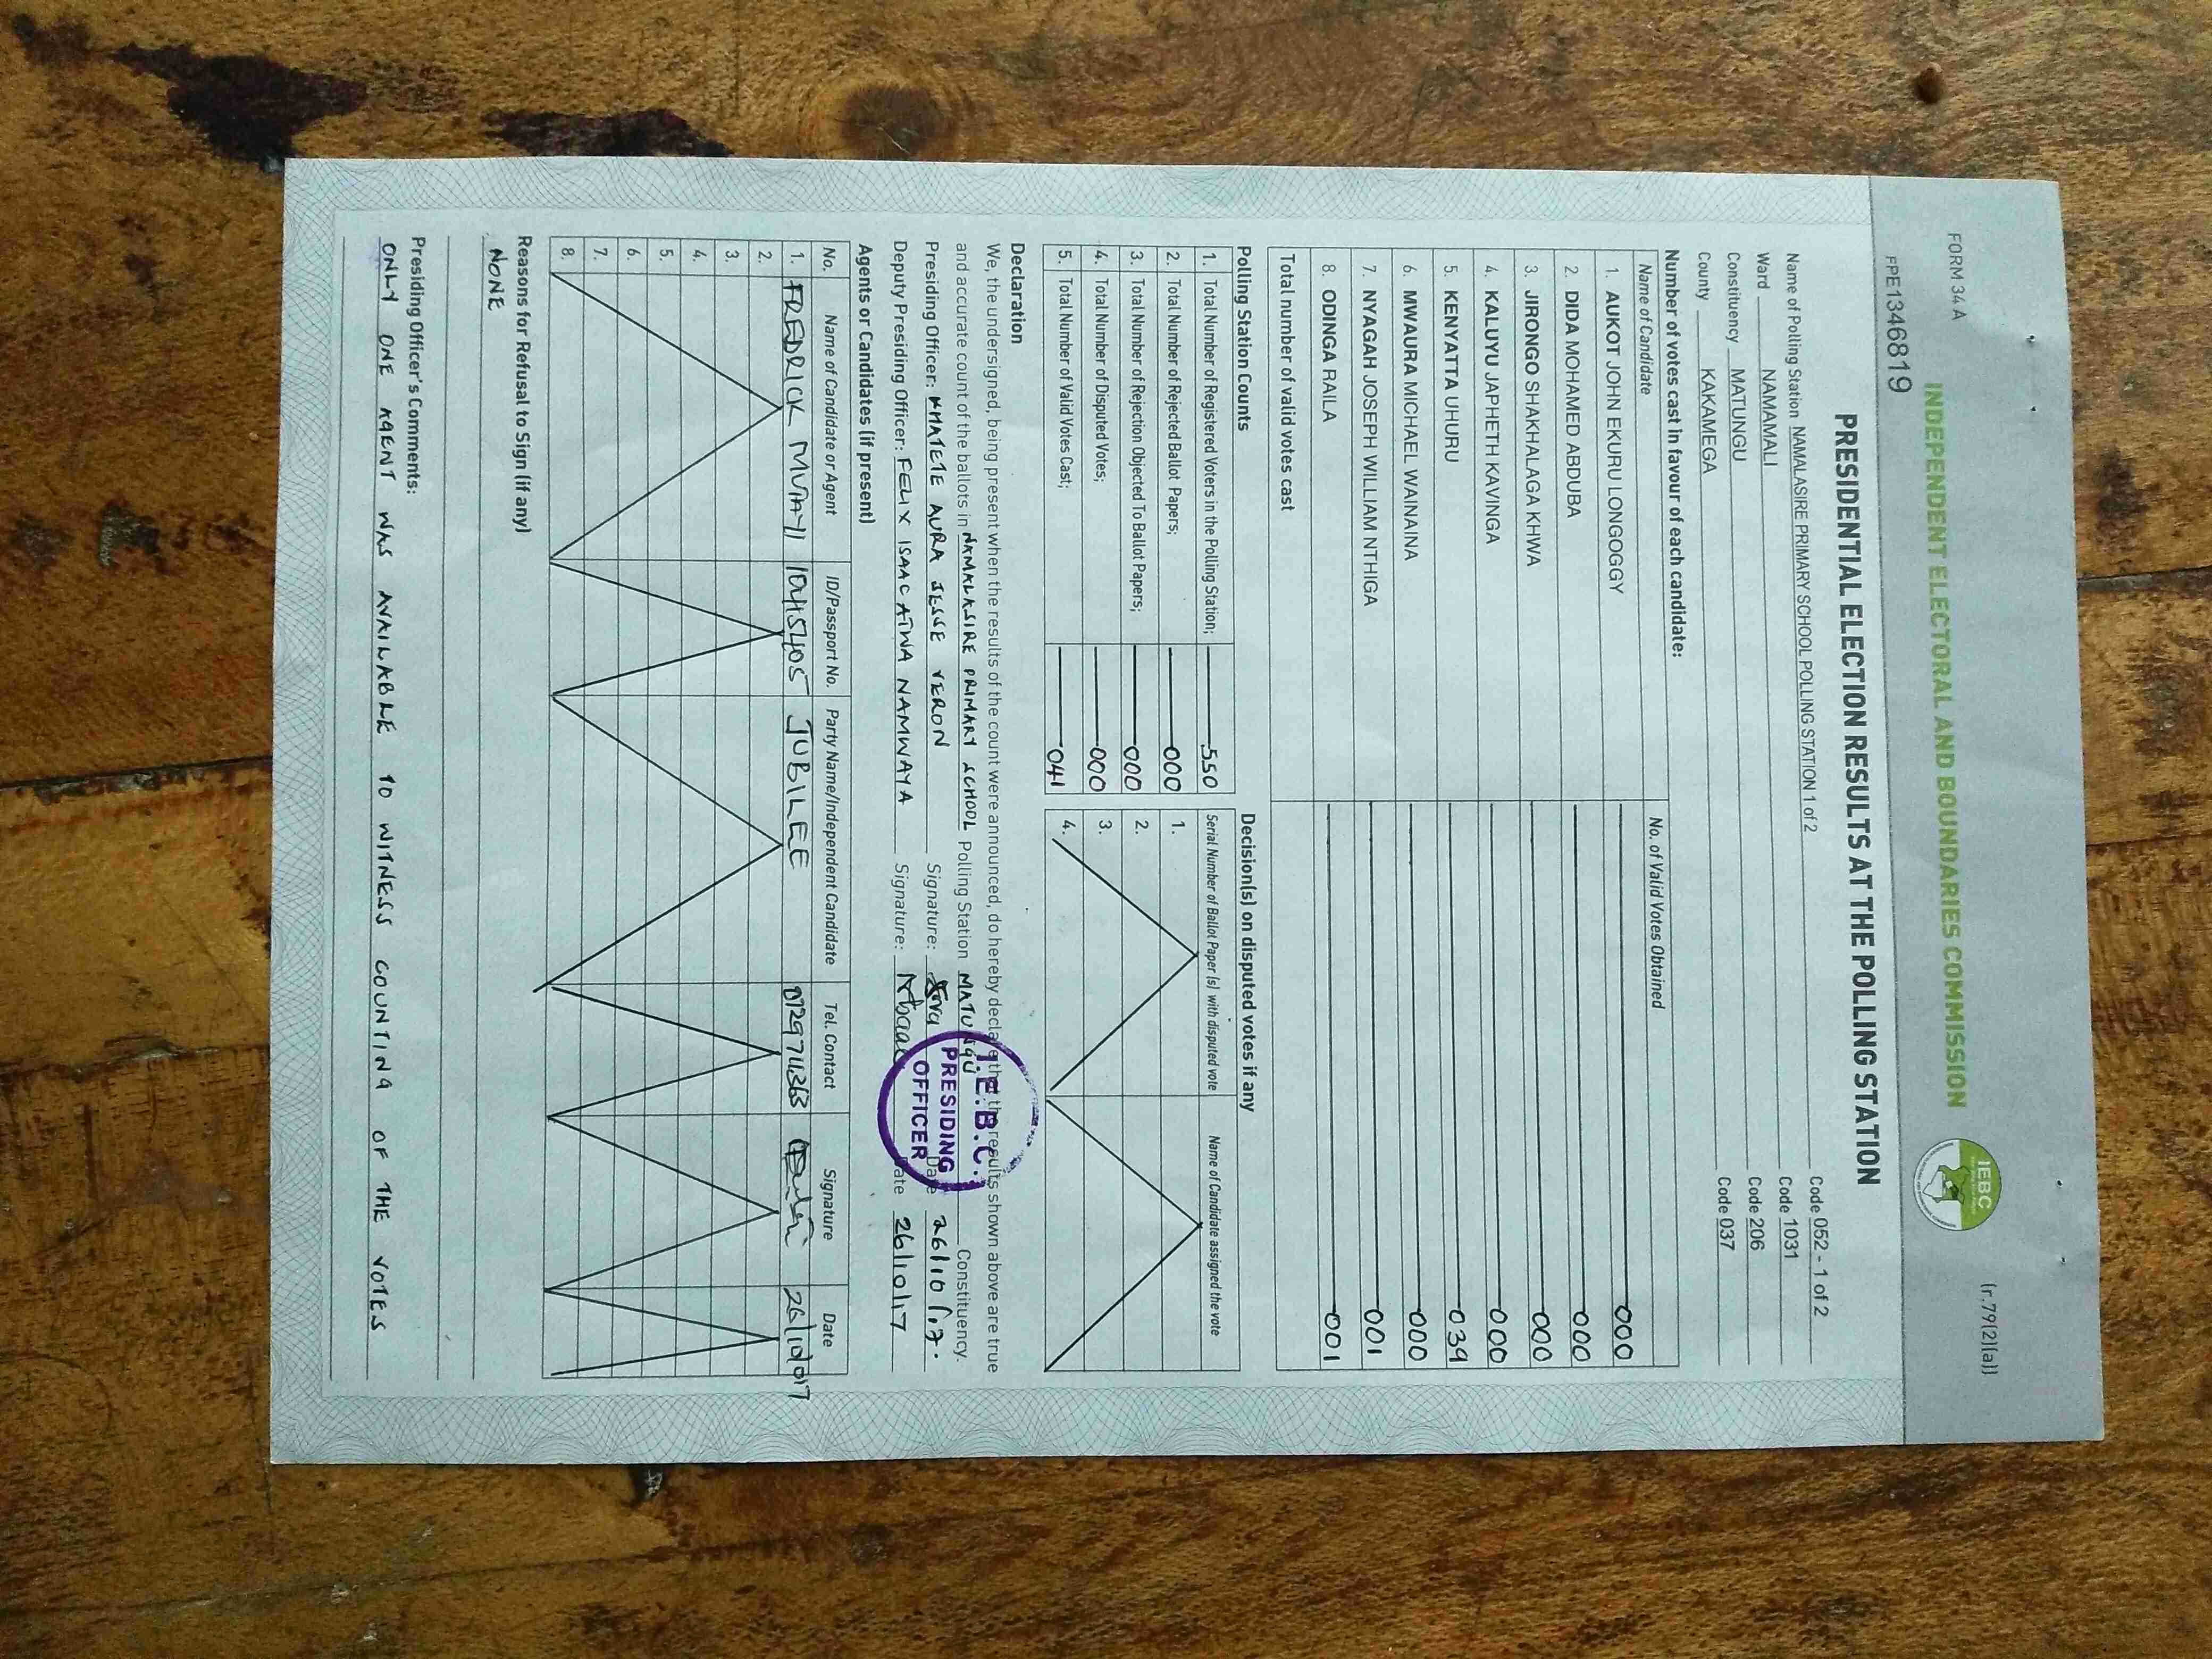 FORM 34A
(r.79(2)(a))
INDEPENDENT ELECTORAL AND BOUNDARIES COMMISSION
IEBC
FPE1346819
PRESIDENTIAL ELECTION RESULTS AT THE POLLING STATION
Name of Polling Station NAMALASIRE PRIMARY SCHOOL POLLING STATION 1 of 2 Code 052 - 1 of 2
Ward NAMAMALI Code 1031
Constituency MATUNGU Code 206
County KAKAMEGA Code 037
Number of votes cast in favour of each candidate:
Name of Candidate No. of Valid Votes Obtained
1. AUKOT JOHN EKURU LONGOGGY 000
2. DIDA MOHAMED ABDUBA 000
3. JIRONGO SHAKHALAGA KHWA 000
4. KALUYU JAPHETH KAVINGA 000
5. KENYATTA UHURU 039
6. MWAURA MICHAEL WAINAINA 000
7. NYAGAH JOSEPH WILLIAM NTHIGA 001
8. ODINGA RAILA 001
Total number of valid votes cast
Polling Station Counts Decision(s) on disputed votes if any
1. Total Number of Registered Voters in the Polling Station; 550 Serial Number of Ballot Paper (s) with disputed vote Name of Candidate assigned the vote
2. Total Number of Rejected Ballot Papers; 000 1.
3. Total Number of Rejection Objected To Ballot Papers; 000 2.
4. Total Number of Disputed Votes; 000 3.
5. Total Number of Valid Votes Cast; 041 4.
Declaration
We, the undersigned, being present when the results of the count were announced, do hereby declare that the results shown above are true
and accurate count of the ballots in NAMALASIRE PRIMARY SCHOOL Polling Station MATUNGU Constituency.
Presiding Officer: KHATETE AURA JESSE VERON Signature: Date 26/10/17.
Deputy Presiding Officer: FELIX ISAAC ATWA NAMWAYA Signature: Date 26/10/17
I.E.B.C.
PRESIDING
OFFICER
Agents or Candidates (if present)
No. Name of Candidate or Agent ID/Passport No. Party Name/Independent Candidate Tel. Contact Signature Date
1. FREDRICK MUTAYI JUBILEE
2.
3.
4.
5.
6.
7.
8.
Reasons for Refusal to Sign (if any)
NONE
Presiding Officer's Comments:
ONLY ONE AGENT WAS AVAILABLE TO WITNESS COUNTING OF THE VOTES